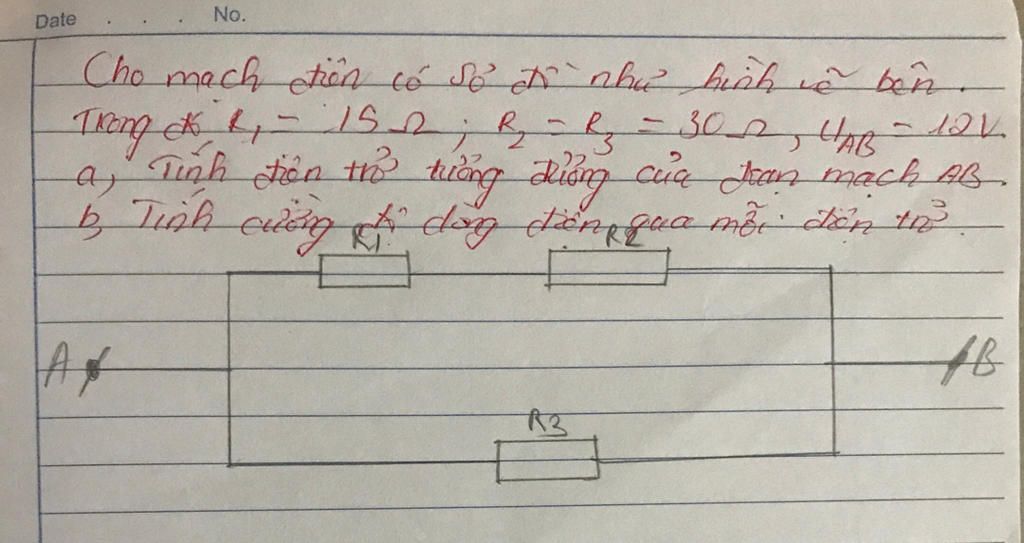 Date . . . . No.
Cho mạch điện có sơ đồ như hình vẽ bên.
Trong đó R1 = 15Ω ; R2 = R3 = 30Ω, UAB = 12V.
a, Tính điện trở tương đương của đoạn mạch AB.
b, Tính cường độ dòng điện qua mỗi điện trở.
R1 R2
A B
R3